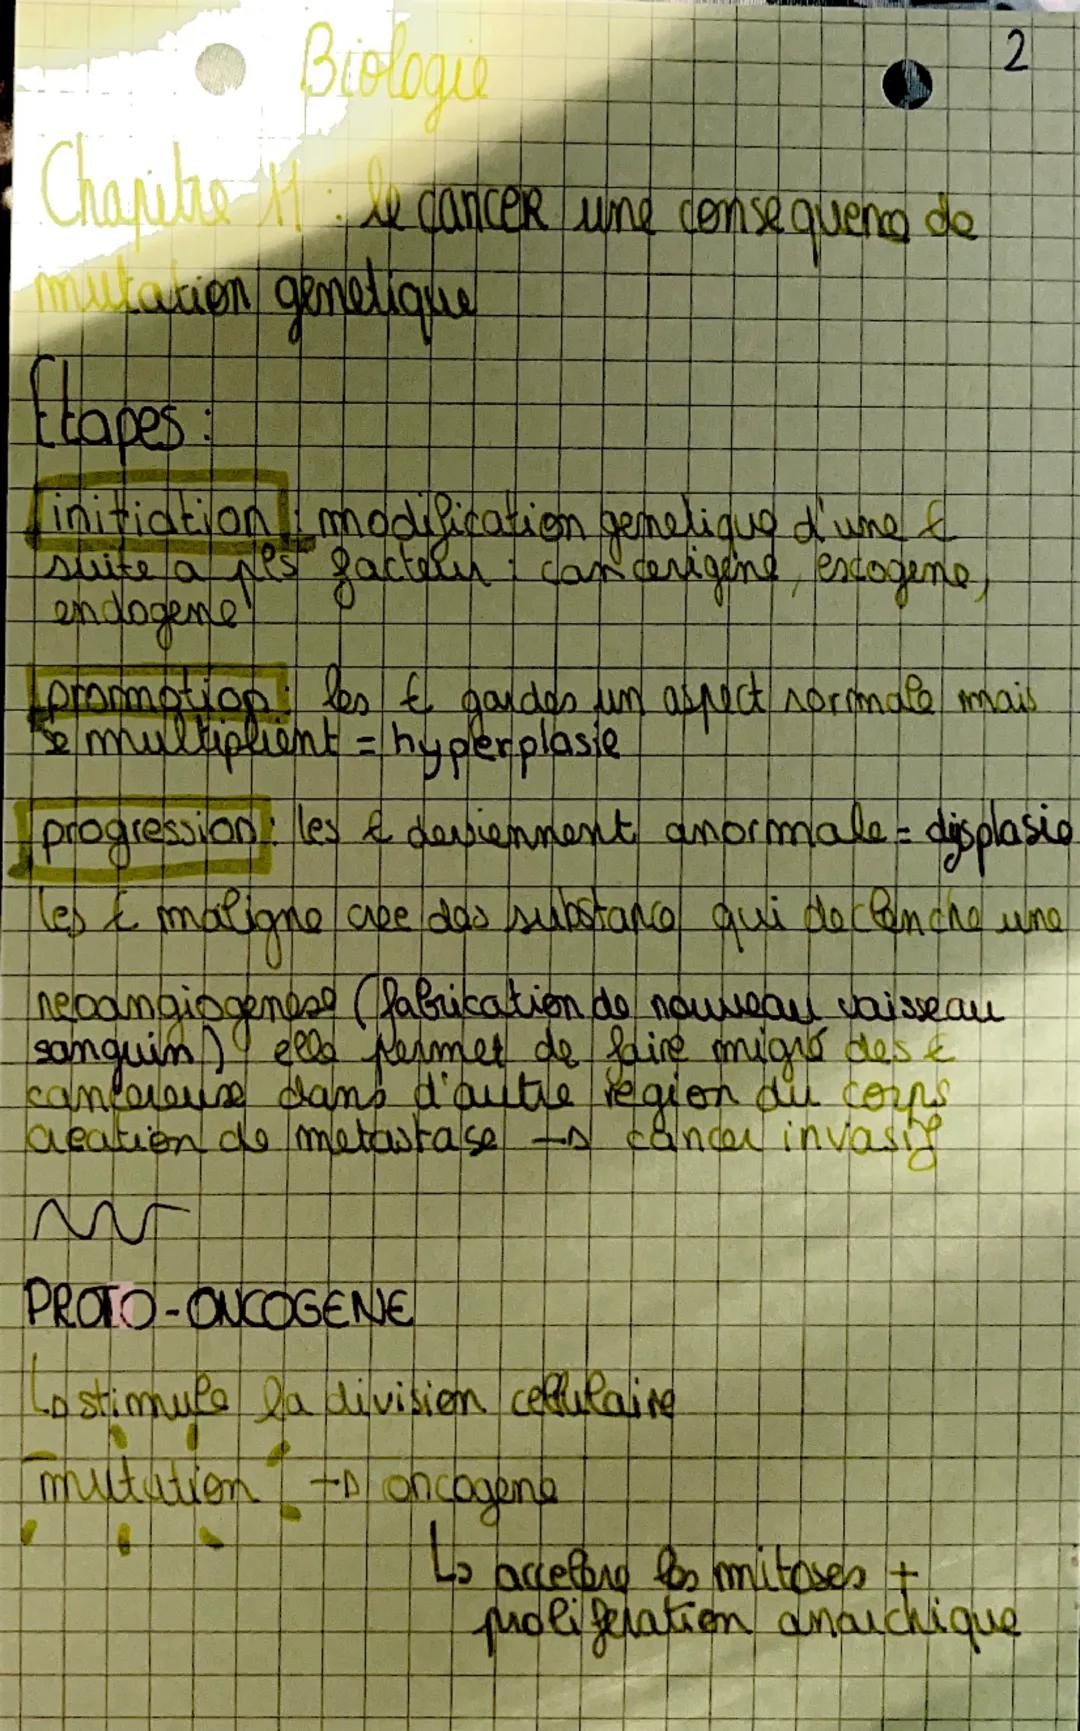 2
Biologie
Chapitre 11 : le cancer une consequence de
mutation genetique
Etapes :
initiation : modification genetique d'une €
suite a pls facteur : cancerigene, exogene,
endogene
prommotion : les € gardes un aspect normale mais
se multiplient = hyperplasie
progression : les € deviennent anormale = dysplasie
les € maligne cree des substance qui declenche une
neoangiogenese (fabrication de nouveau vaisseau
sanguin) elle permet de faire migré des €
cancereuse dans d'autre region du corps
creation de metastase → cancer invasif
PROTO-ONCOGENE
↳ stimule la division cellulaire
mutation → oncogene
↳ accelere les mitoses +
proliferation anarchique